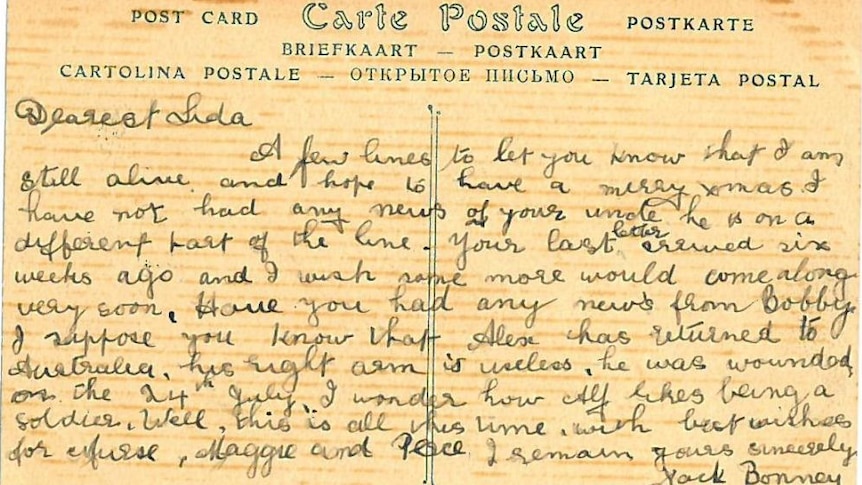 POST CARD Carte Postale POSTKARTE
BRIEFKAART — POSTKAART
CARTOLINA POSTALE — ОТКРЫТОЕ ПИСЬМО — TARJETA POSTAL
Dearest Lida
A few lines to let you know that I am
still alive and hope to have a merry xmas I
have not had any news of your uncle he is on a
different part of the line. Your last letter arrived six
weeks ago and I wish some more would come along
very soon, Have you had any news from Bobby
I suppose you know that Alex has returned to
Australia, his right arm is useless, he was wounded
on the 24th July, I wonder how Alf likes being a
soldier. Well, this is all this time, with best wishes
for, Maggie and I remain yours sincerely
Jack Bonney